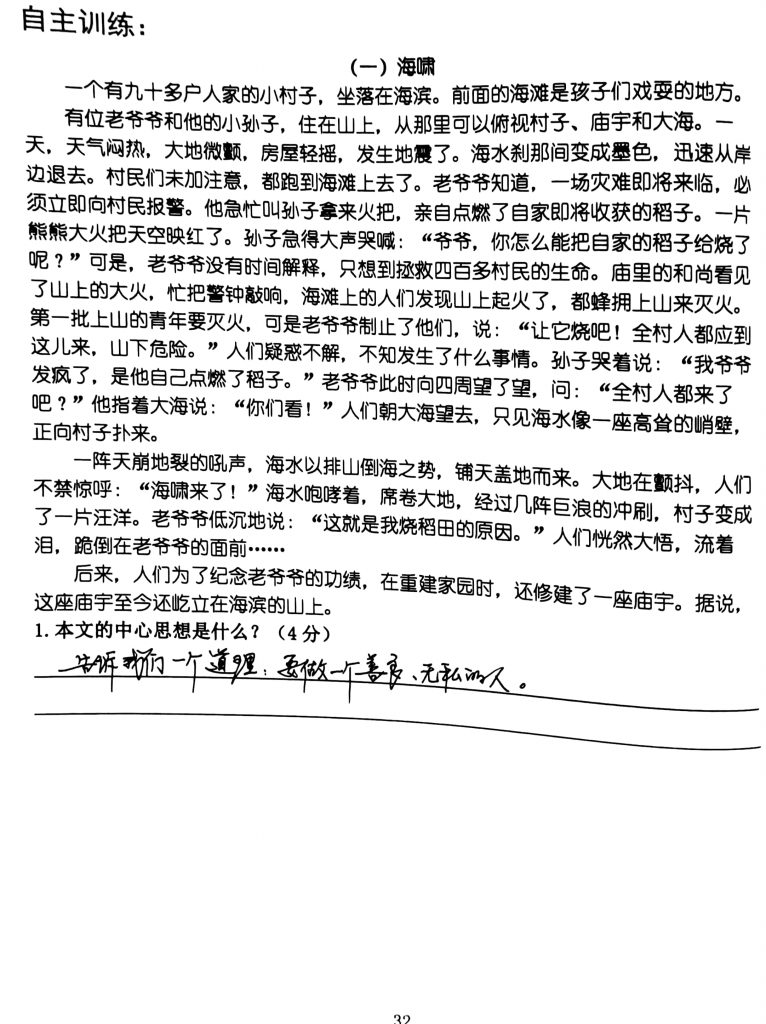 自主训练：
（一）海啸
一个有九十多户人家的小村子，坐落在海滨。前面的海滩是孩子们戏耍的地方。
有位老爷爷和他的小孙子，住在山上，从那里可以俯视村子、庙宇和大海。一
天，天气闷热，大地微颤，房屋轻摇，发生地震了。海水刹那间变成墨色，迅速从岸
边退去。村民们未加注意，都跑到海滩上去了。老爷爷知道，一场灾难即将来临，必
须立即向村民报警。他急忙叫孙子拿来火把，亲自点燃了自家即将收获的稻子。一片
熊熊大火把天空映红了。孙子急得大声哭喊：“爷爷，你怎么能把自家的稻子给烧了
呢？”可是，老爷爷没有时间解释，只想到拯救四百多村民的生命。庙里的和尚看见
了山上的大火，忙把警钟敲响，海滩上的人们发现山上起火了，都蜂拥上山来灭火。
第一批上山的青年要灭火，可是老爷爷制止了他们，说：“让它烧吧！全村人都应到
这儿来，山下危险。”人们疑惑不解，不知发生了什么事情。孙子哭着说：“我爷爷
发疯了，是他自己点燃了稻子。”老爷爷此时向四周望了望，问：“全村人都来了
吧？”他指着大海说：“你们看！”人们朝大海望去，只见海水像一座高耸的峭壁，
正向村子扑来。
一阵天崩地裂的吼声，海水以排山倒海之势，铺天盖地而来。大地在颤抖，人们
不禁惊呼：“海啸来了！”海水咆哮着，席卷大地，经过几阵巨浪的冲刷，村子变成
了一片汪洋。老爷爷低沉地说：“这就是我烧稻田的原因。”人们恍然大悟，流着
泪，跪倒在老爷爷的面前……
后来，人们为了纪念老爷爷的功绩，在重建家园时，还修建了一座庙宇。据说，
这座庙宇至今还屹立在海滨的山上。
1.本文的中心思想是什么？（4分）
告诉我们一个道理：要做一个善良、无私的人。
32